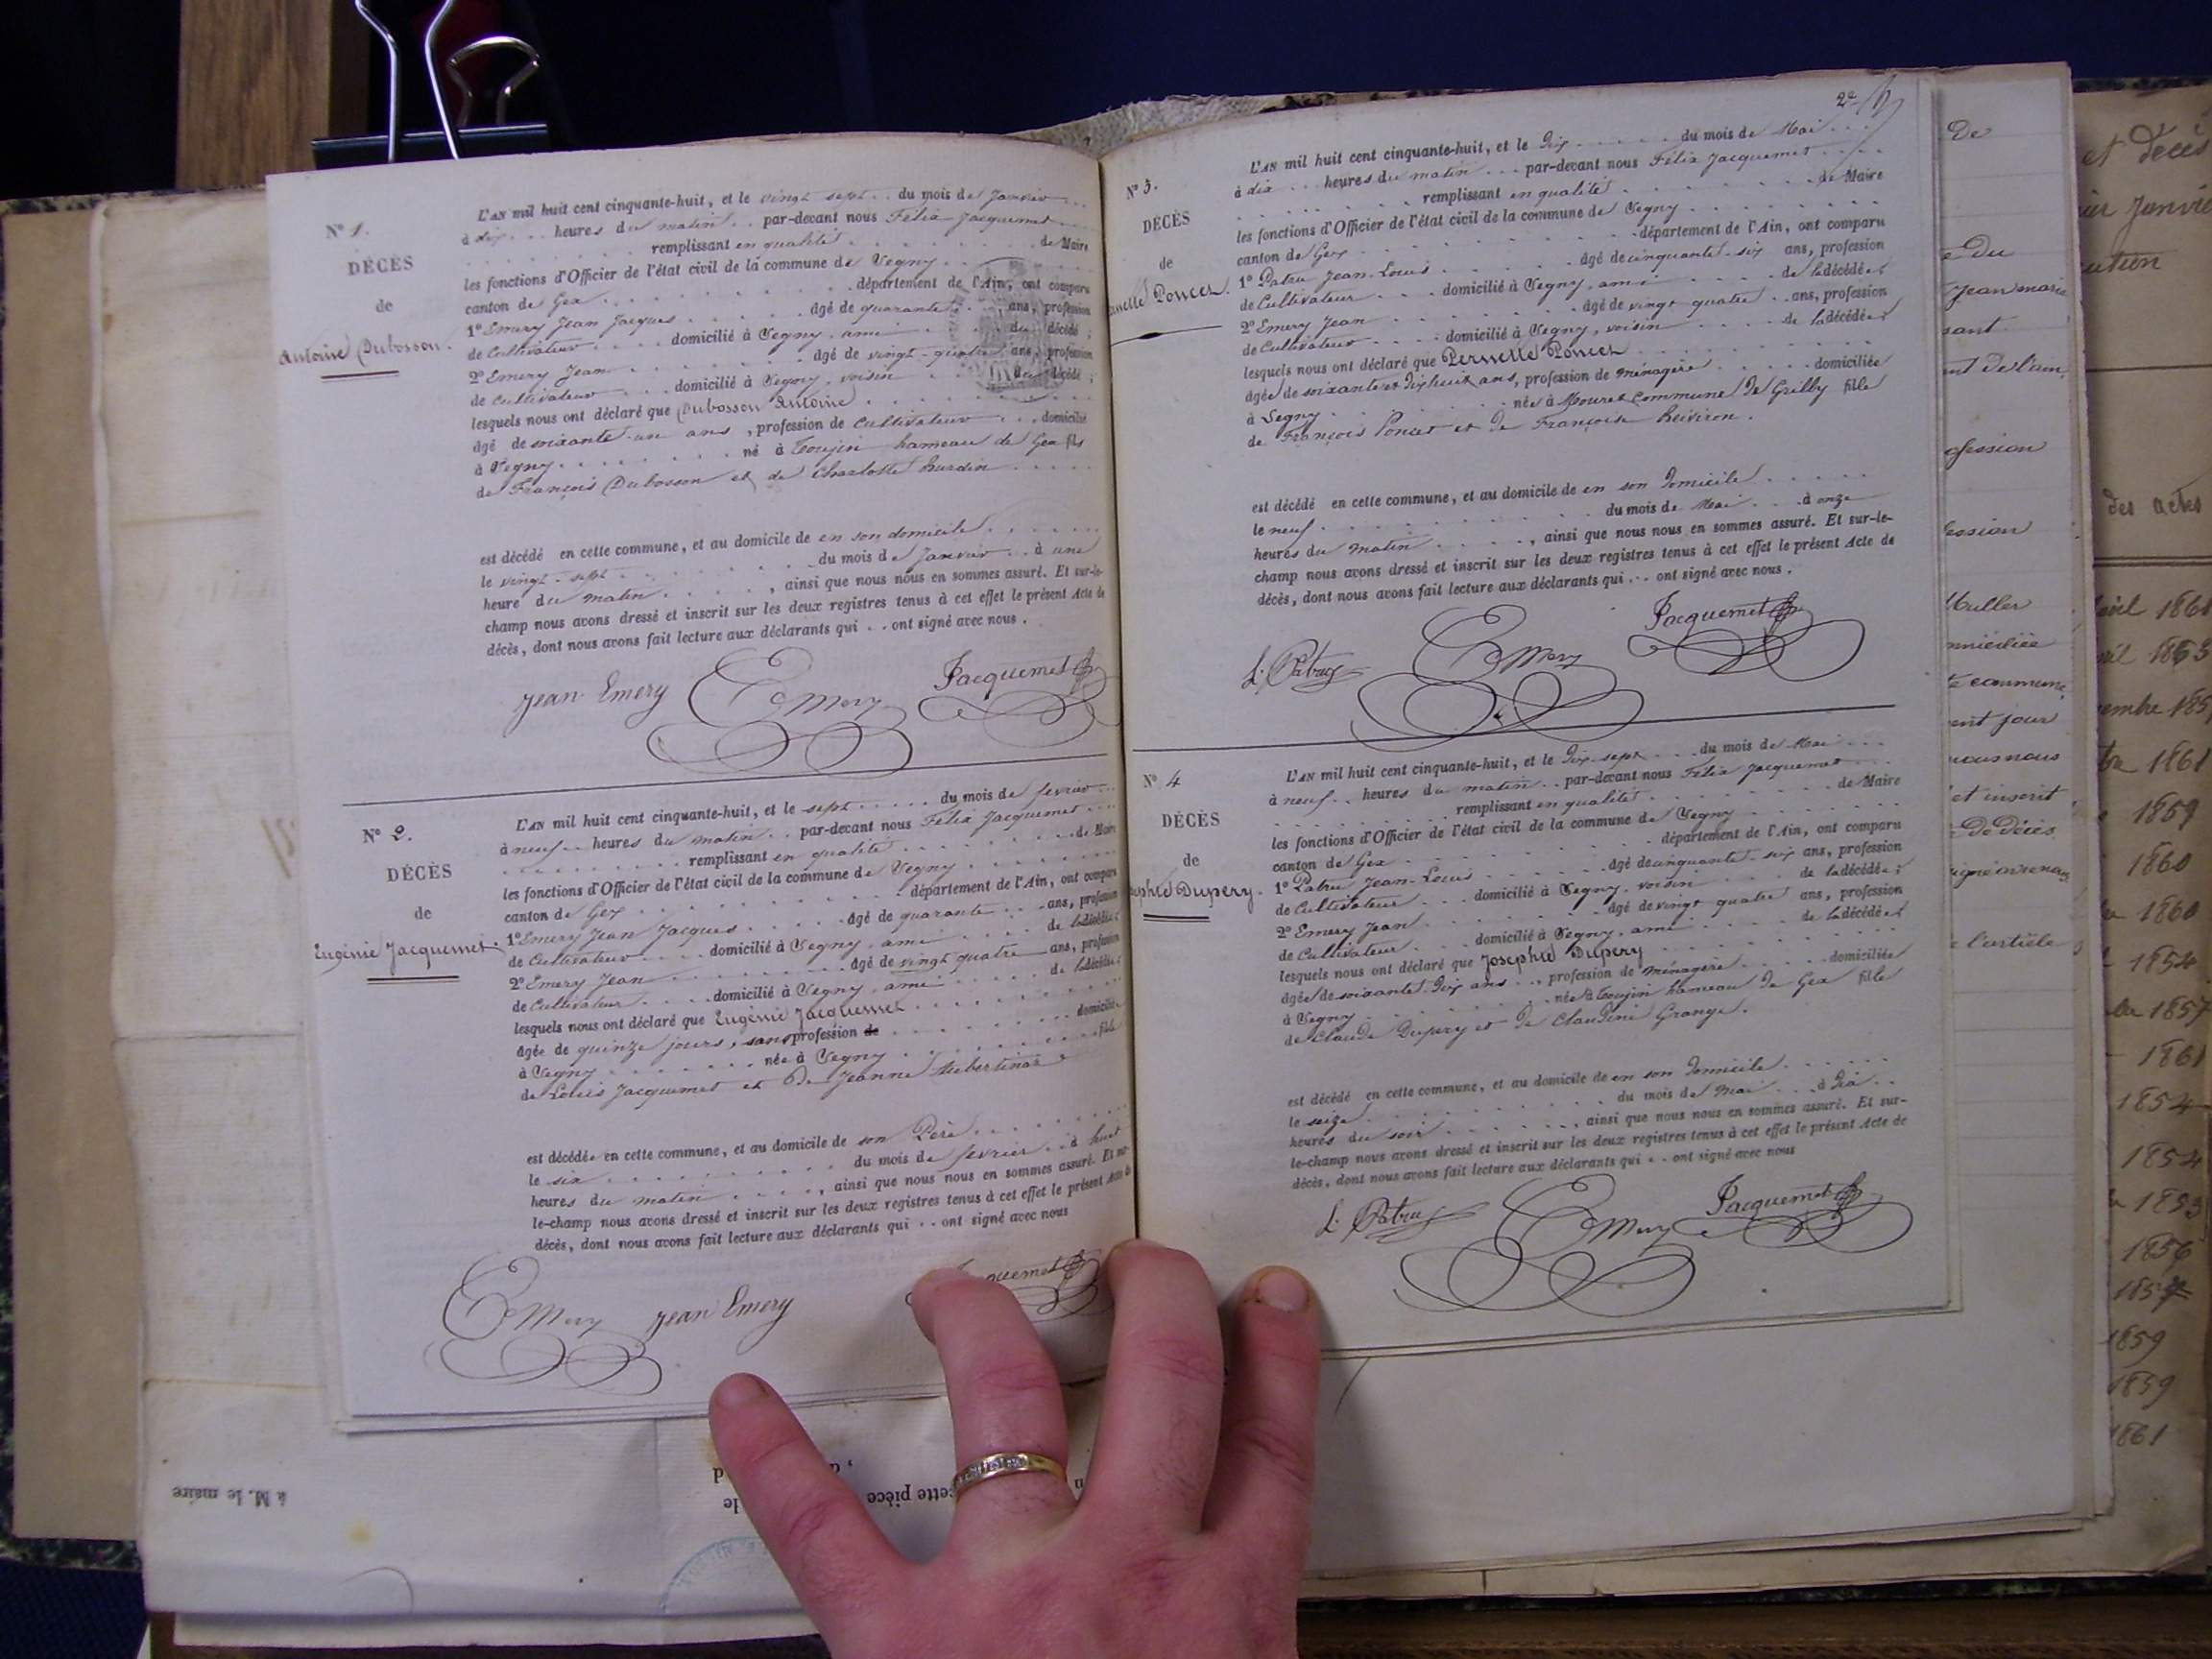 Nº 1.
DÉCÈS
de
Antoine Dubosson.
L'AN mil huit cent cinquante-huit, et le vingt sept . . du mois de Janvier . . .
à dix . . . heures du matin . . par-devant nous Félix Jacquemet
remplissant en qualité de Maire
les fonctions d'Officier de l'état civil de la commune de Segny
canton de Gex département de l'Ain, ont comparu
1º Emery Jean Jacques âgé de quarante ans, profession
de Cultivateur domicilié à Segny, ami du décédé ;
2º Emery Jean âgé de vingt-quatre ans, profession
de Cultivateur domicilié à Segny, voisin du décédé ;
lesquels nous ont déclaré que Dubosson Antoine
âgé de soixante-un ans, profession de Cultivateur domicilié
à Segny né à Tougin hameau de Gex fils
de François Dubosson et de Charlotte
est décédé en cette commune, et au domicile de en son domicile
le vingt-sept du mois de Janvier à une
heure du matin, ainsi que nous nous en sommes assuré. Et sur-le-
champ nous avons dressé et inscrit sur les deux registres tenus à cet effet le présent Acte de
décès, dont nous avons fait lecture aux déclarants qui . . ont signé avec nous .
Jean Emery Emery Jacquemet
Nº 2.
DÉCÈS
de
Eugénie Jacquemet.
L'AN mil huit cent cinquante-huit, et le sept du mois de fevrier
à neuf heures du matin par-devant nous Félix Jacquemet
remplissant en qualité de Maire
les fonctions d'Officier de l'état civil de la commune de Segny
canton de Gex département de l'Ain, ont comparu
1º Emery Jean Jacques âgé de quarante ans, profession
de Cultivateur domicilié à Segny, ami de la décédée ;
2º Emery Jean âgé de vingt quatre ans, profession
de Cultivateur domicilié à Segny, ami de la décédée ;
lesquels nous ont déclaré que Eugénie Jacquemet
âgée de quinze jours, sans profession de domiciliée
à Segny née à Segny fille
de Louis Jacquemet et de Jeanne
est décédée en cette commune, et au domicile de son Père
le six du mois de fevrier à huit
heures du matin, ainsi que nous nous en sommes assuré. Et sur-
le-champ nous avons dressé et inscrit sur les deux registres tenus à cet effet le présent Acte de
décès, dont nous avons fait lecture aux déclarants qui . . ont signé avec nous
Emery Jean Emery
2e
Nº 3.
DÉCÈS
de
Poncet.
L'AN mil huit cent cinquante-huit, et le Dix du mois de Mai
à dix heures du matin par-devant nous Félix Jacquemet
remplissant en qualité de Maire
les fonctions d'Officier de l'état civil de la commune de Segny
canton de Gex département de l'Ain, ont comparu
1º Patru Jean-Louis âgé de cinquante-six ans, profession
de Cultivateur domicilié à Segny, ami de la décédée ;
2º Emery Jean âgé de vingt quatre ans, profession
de Cultivateur domicilié à Segny, voisin de la décédée ;
lesquels nous ont déclaré que Pernette Poncet
âgée de soixante et dix huit ans, profession de ménagère domiciliée
à Segny née à Mourex commune de Grilly fille
de François Poncet et de Françoise
est décédé en cette commune, et au domicile de en son domicile
le neuf du mois de Mai à onze
heures du matin, ainsi que nous nous en sommes assuré. Et sur-le-
champ nous avons dressé et inscrit sur les deux registres tenus à cet effet le présent Acte de
décès, dont nous avons fait lecture aux déclarants qui . . . ont signé avec nous .
L. Patru Emery Jacquemet
Nº 4
DÉCÈS
de
Dupery.
L'AN mil huit cent cinquante-huit, et le Dix-sept du mois de Mai
à neuf heures du matin par-devant nous Félix Jacquemet
remplissant en qualité de Maire
les fonctions d'Officier de l'état civil de la commune de Segny
canton de Gex département de l'Ain, ont comparu
1º Patru Jean-Louis âgé de cinquante-six ans, profession
de Cultivateur domicilié à Segny, voisin de la décédée ;
2º Emery Jean âgé de vingt quatre ans, profession
de Cultivateur domicilié à Segny, ami de la décédée ;
lesquels nous ont déclaré que Josephte Dupery
âgée de soixante-dix ans, profession de ménagère domiciliée
à Segny née à Tougin hameau de Gex fille
de Claude Dupery et de Claudine Grange.
est décédé en cette commune, et au domicile de en son domicile
le seize du mois de Mai à dix
heures du soir, ainsi que nous nous en sommes assuré. Et sur-
le-champ nous avons dressé et inscrit sur les deux registres tenus à cet effet le présent Acte de
décès, dont nous avons fait lecture aux déclarants qui . . ont signé avec nous
L. Patru Emery Jacquemet
De
Du
Jean marie
de l'ain,
Muller
commune,
jour
nous nous
et inscrit
De Décès
l'article
et décès
Janvier
des actes
1861
1861
1859
1860
1860
1854
1857
1861
1854
1854
1853
1856
1857
1859
1859
1861
à M. le maire
cette pièce